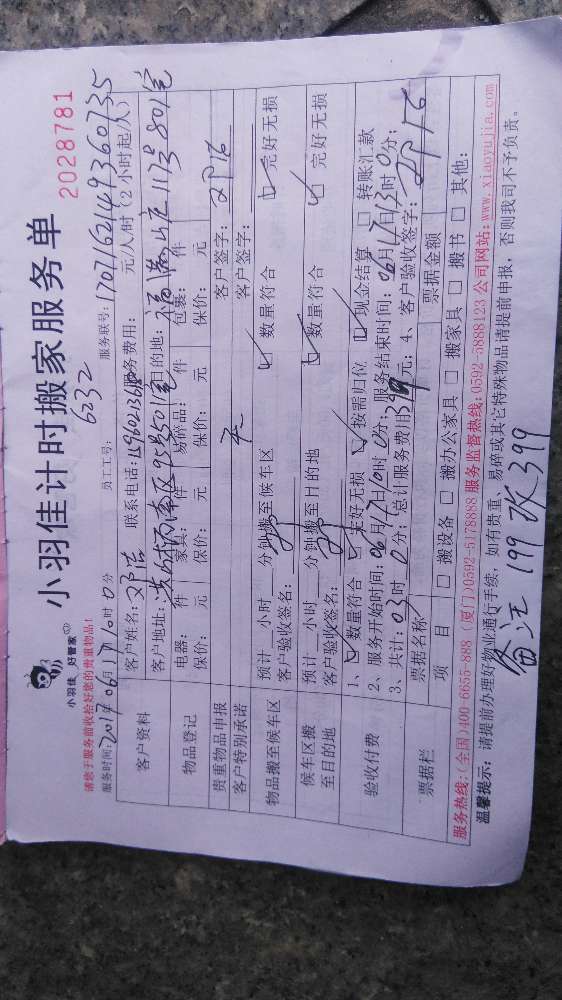 小羽佳 好管家
小羽佳计时搬家服务单
2028781
请您于服务前收拾好您的贵重物品!
员工工号: 6232
服务联号: 1707162149360735
服务时间: 2017年06月17日10时0分
元/人/时 (2小时起/人)
客户资料
客户姓名: 邓浩 联系电话: 服务费用:
客户地址: 501室 目的地: 福满山庄117号801室
物品登记
电器: 件 家具: 件 易碎品: 件 包裹: 件
保价: 元 保价: 元 保价: 元 保价: 元
贵重物品申报 客户签字:
客户特别承诺 无 客户签字:
物品搬至候车区
预计 小时 分钟搬至候车区 ☑ 数量符合 ☑ 完好无损
客户验收签名:
候车区搬至目的地
预计 小时 分钟搬至目的地 ☑ 数量符合 ☑ 完好无损
客户验收签名:
验收付费
1、☑ 数量符合 ☑ 完好无损 ☑ 按需归位 ☑ 现金结算 □ 转账汇款
2、服务开始时间: 06月17日10时0分; 服务结束时间: 06月17日13时0分;
3、共计: 03时0分; 总计服务费用 399 元; 4、客户验收签字:
票据栏
票据名称 票据金额
项目 □ 搬设备 □ 搬办公家具 □ 搬家具 □ 搬书 □ 其他:
服务热线:(全国)400-6655-888 (厦门)0592-5178888 服务监督热线:0592-5888123 公司网站:www.xiaoyujia.com
温馨提示: 请提前办理好物业通行手续, 如有贵重、易碎或其它特殊物品请提前申报, 否则我司不予负责。
备注 199 改 399